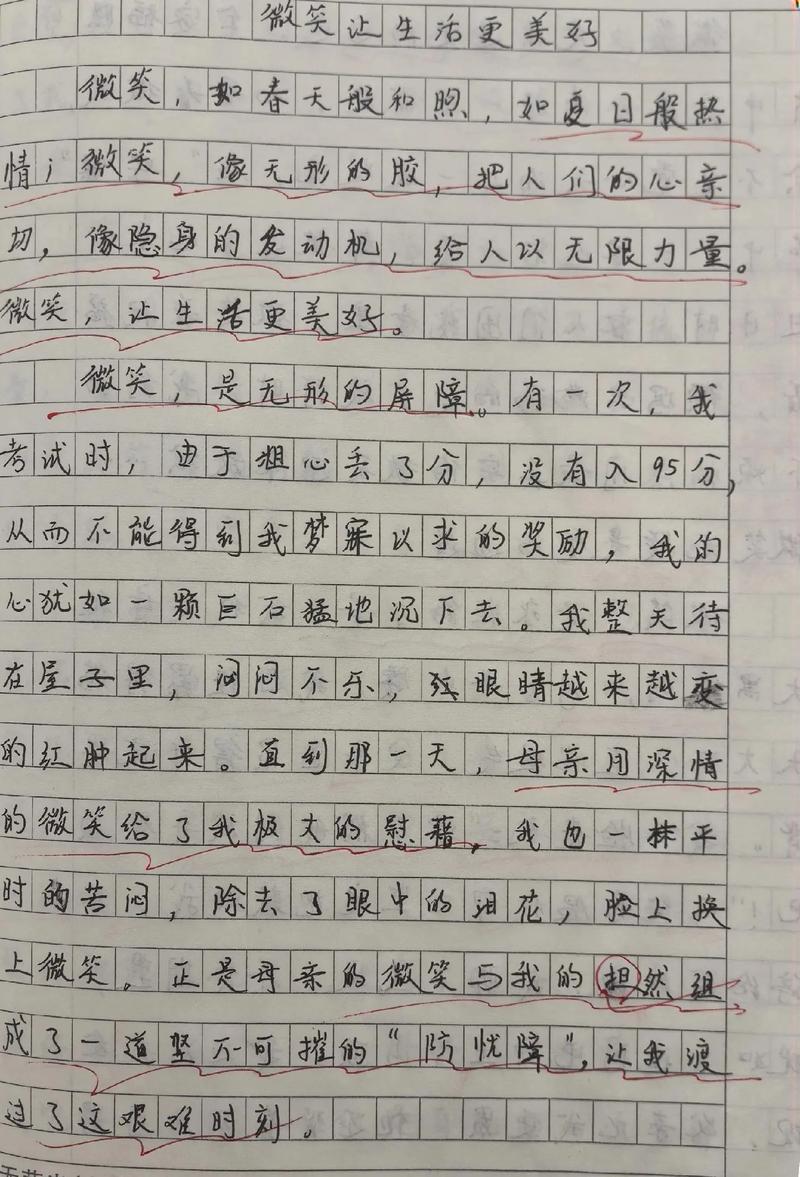 微笑让生活更美好
微笑，如春天般和煦，如夏日般热
情；微笑，像无形的胶，把人们的心亲
切，像隐身的发动机，给人以无限力量。
微笑，让生活更美好。
微笑，是无形的屏障。有一次，我
考试时，由于粗心丢了分，没有入95分，
从而不能得到我梦寐以求的奖励，我的
心犹如一颗巨石猛地沉下去。我整天待
在屋子里，闷闷不乐，眼睛越来越变
的红肿起来。直到那一天，母亲用深情
的微笑给了我极大的慰藉，我也一抹平
时的苦闷，除去了眼中的泪花，脸上换
上微笑。正是母亲的微笑与我的担然组
成了一道坚不可摧的“防忧障”，让我渡
过了这艰难时刻。